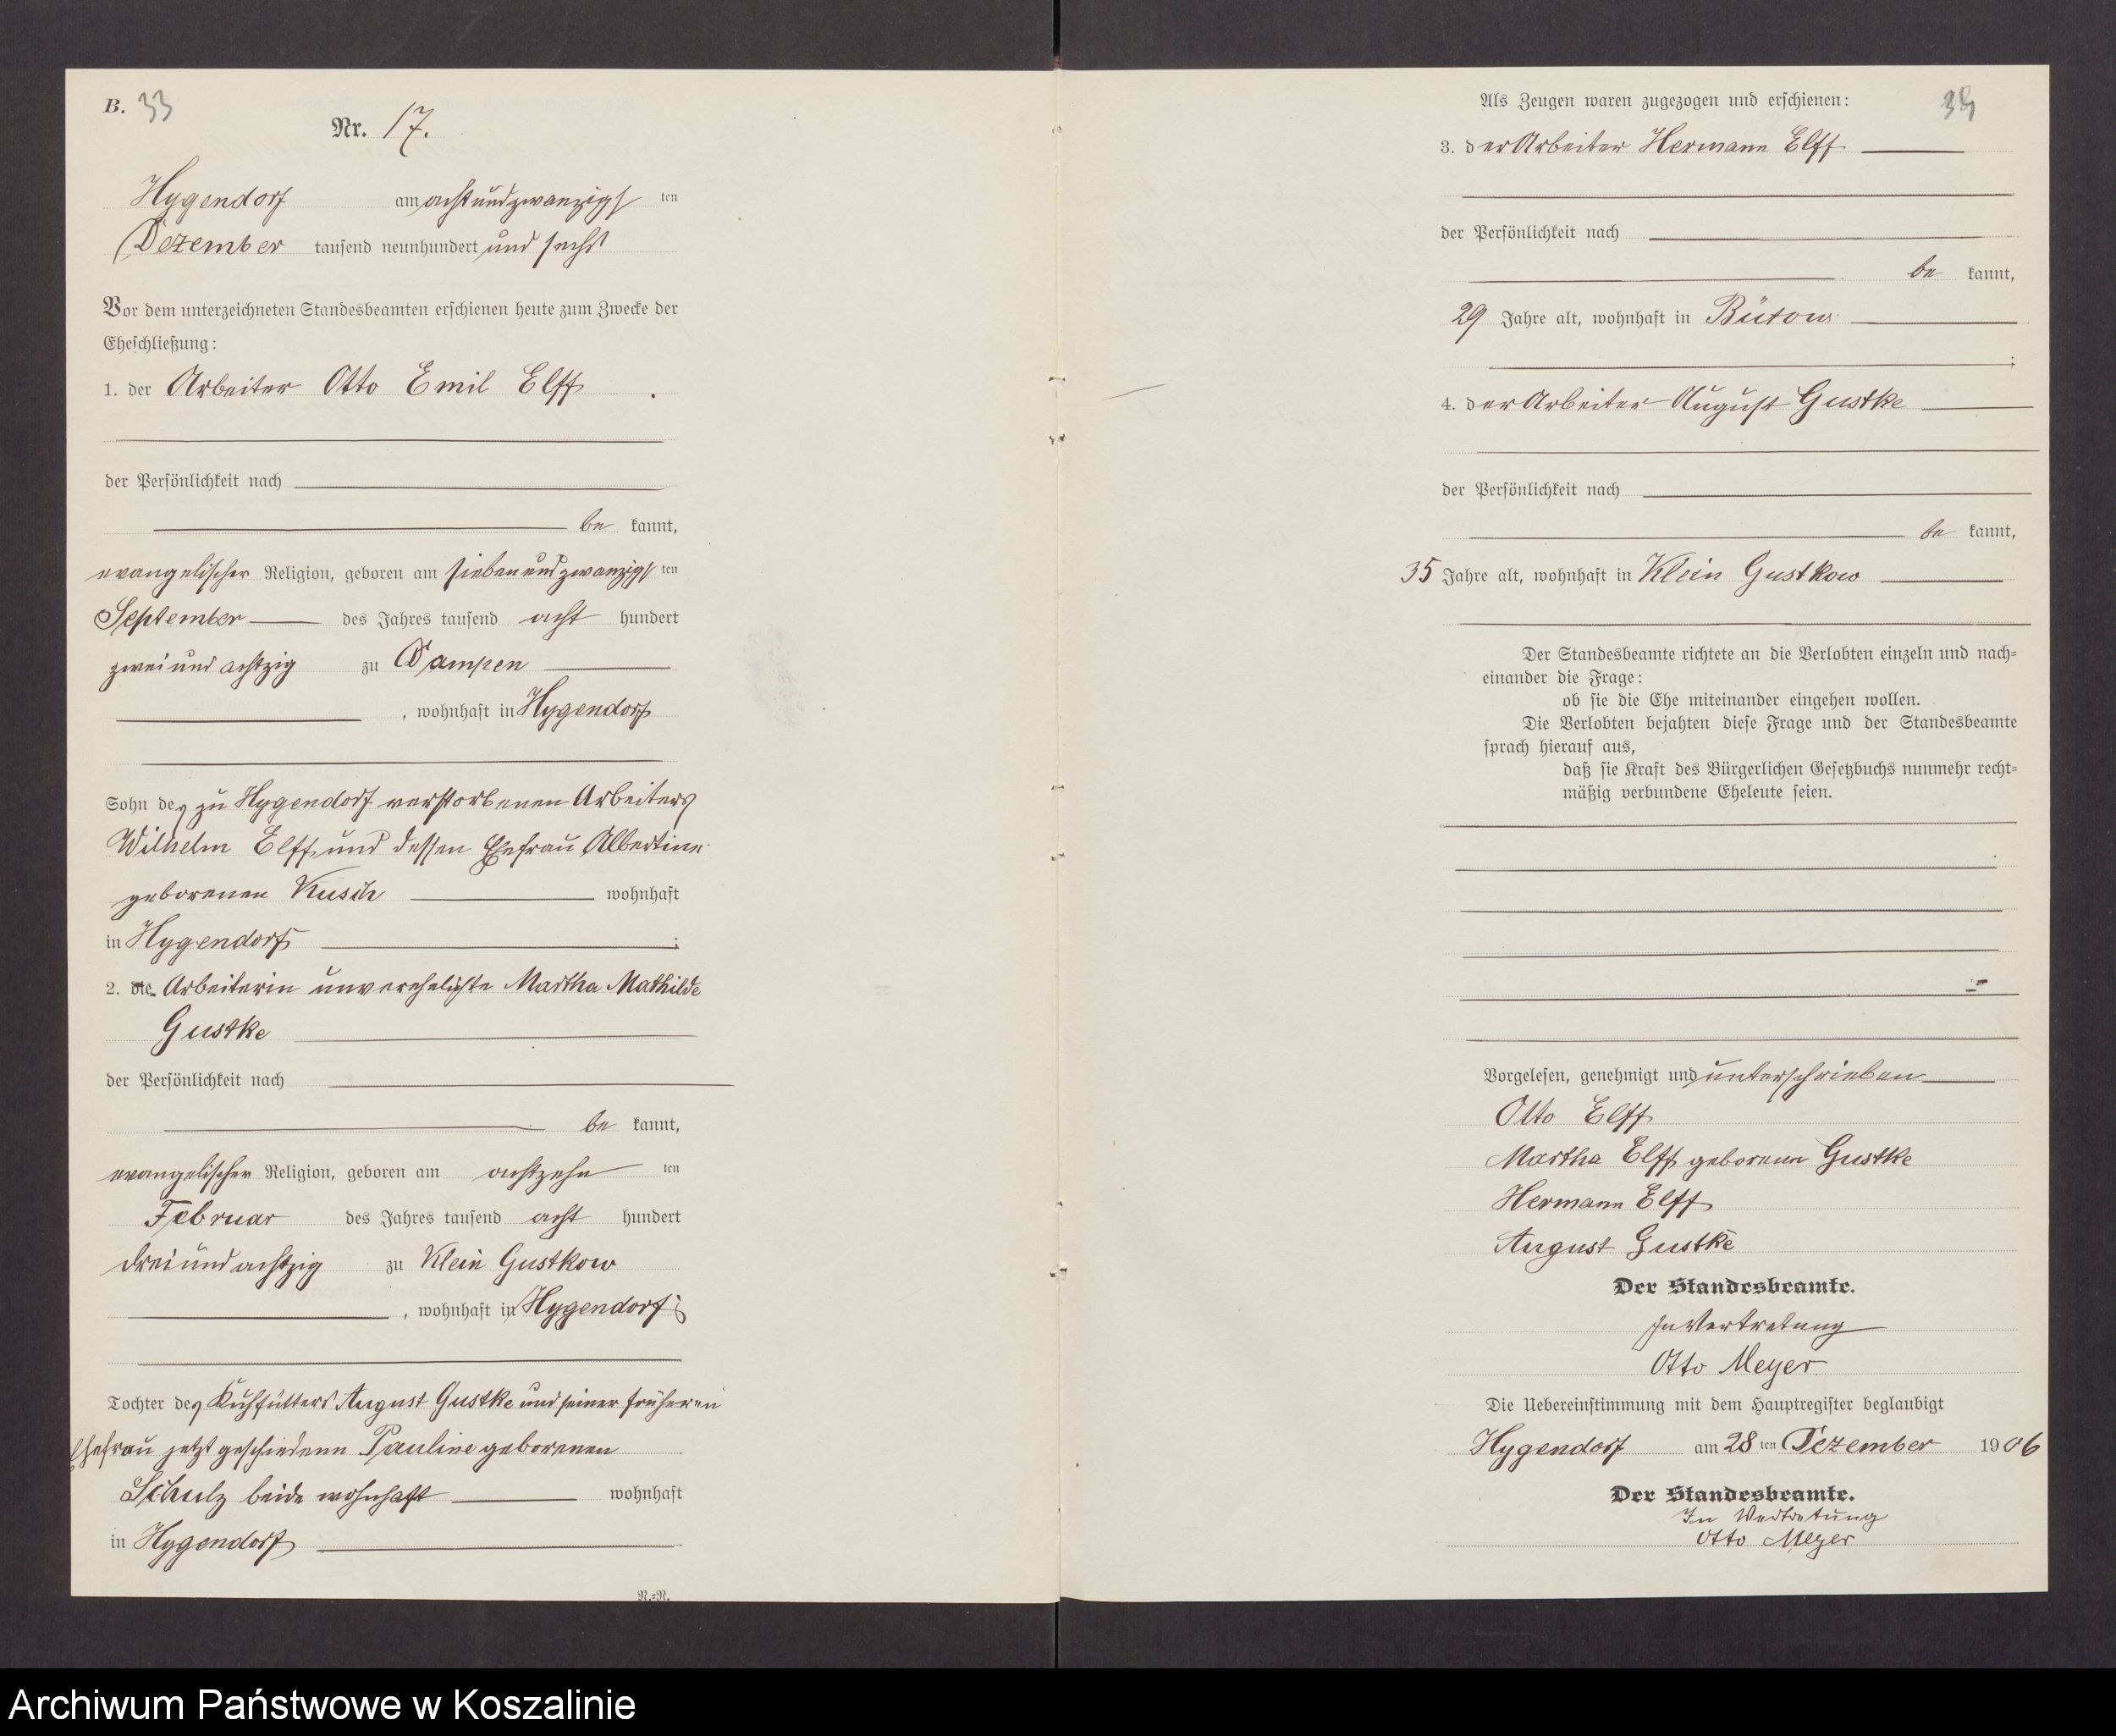 B. 33
Nr. 17.
Hygendorf am achtundzwanzigsten
Dezember tausend neunhundert und sechs
Vor dem unterzeichneten Standesbeamten erschienen heute zum Zwecke der
Eheschließung:
1. der Arbeiter Otto Emil Elff
der Persönlichkeit nach
be kannt,
evangelischer Religion, geboren am siebenundzwanzigsten
September des Jahres tausend acht hundert
zweiundachtzig zu Dampen
, wohnhaft in Hygendorf
Sohn des zu Hygendorf verstorbenen Arbeiters
Wilhelm Elff und dessen Ehefrau Albertine
geborenen Kusch wohnhaft
in Hygendorf ;
2. die Arbeiterin unverehelichte Martha Mathilde
Gustke
der Persönlichkeit nach
be kannt,
evangelischer Religion, geboren am achtzehn ten
Februar des Jahres tausend acht hundert
dreiundachtzig zu Klein Gustkow
, wohnhaft in Hygendorf
Tochter des Kuhfütters August Gustke und seiner früheren
Ehefrau jetzt geschiedenen Pauline geborenen
Schulz beide wohnhaft wohnhaft
in Hygendorf
N.=N.
Als Zeugen waren zugezogen und erschienen: 34
3. der Arbeiter Hermann Elff
der Persönlichkeit nach
be kannt,
29 Jahre alt, wohnhaft in Bütow
;
4. der Arbeiter August Gustke
der Persönlichkeit nach
be kannt,
35 Jahre alt, wohnhaft in Klein Gustkow
Der Standesbeamte richtete an die Verlobten einzeln und nach=
einander die Frage:
ob sie die Ehe miteinander eingehen wollen.
Die Verlobten bejahten diese Frage und der Standesbeamte
sprach hierauf aus,
daß sie Kraft des Bürgerlichen Gesetzbuchs nunmehr recht=
mäßig verbundene Eheleute seien.
Vorgelesen, genehmigt und unterschrieben
Otto Elff
Martha Elff geborene Gustke
Hermann Elff
August Gustke
Der Standesbeamte.
In Vertretung
Otto Meyer
Die Uebereinstimmung mit dem Hauptregister beglaubigt
Hygendorf am 28 ten Dezember 1906
Der Standesbeamte.
In Vertretung
Otto Meyer
Archiwum Państwowe w Koszalinie